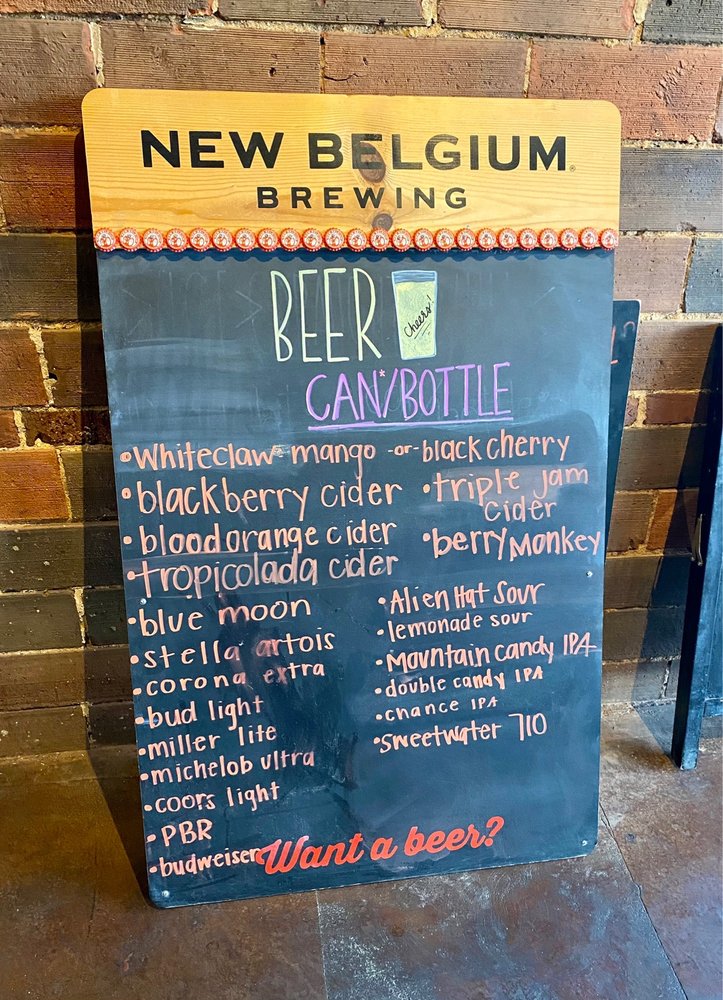 NEW BELGIUM
BREWING
BEER
Cheers!
CAN*/BOTTLE
•Whiteclaw - mango -or- black cherry
•blackberry cider
•triple jam
cider
•blood orange cider
•berry Monkey
•tropicolada cider
•blue moon
•Alien Hat Sour
•lemonade sour
•stella artois
•Mountain candy IPA
•corona extra
•double candy IPA
•bud light
•chance IPA
•miller lite
•sweetwater 710
•michelob ultra
•coors light
•PBR
•budweiser
Want a beer?